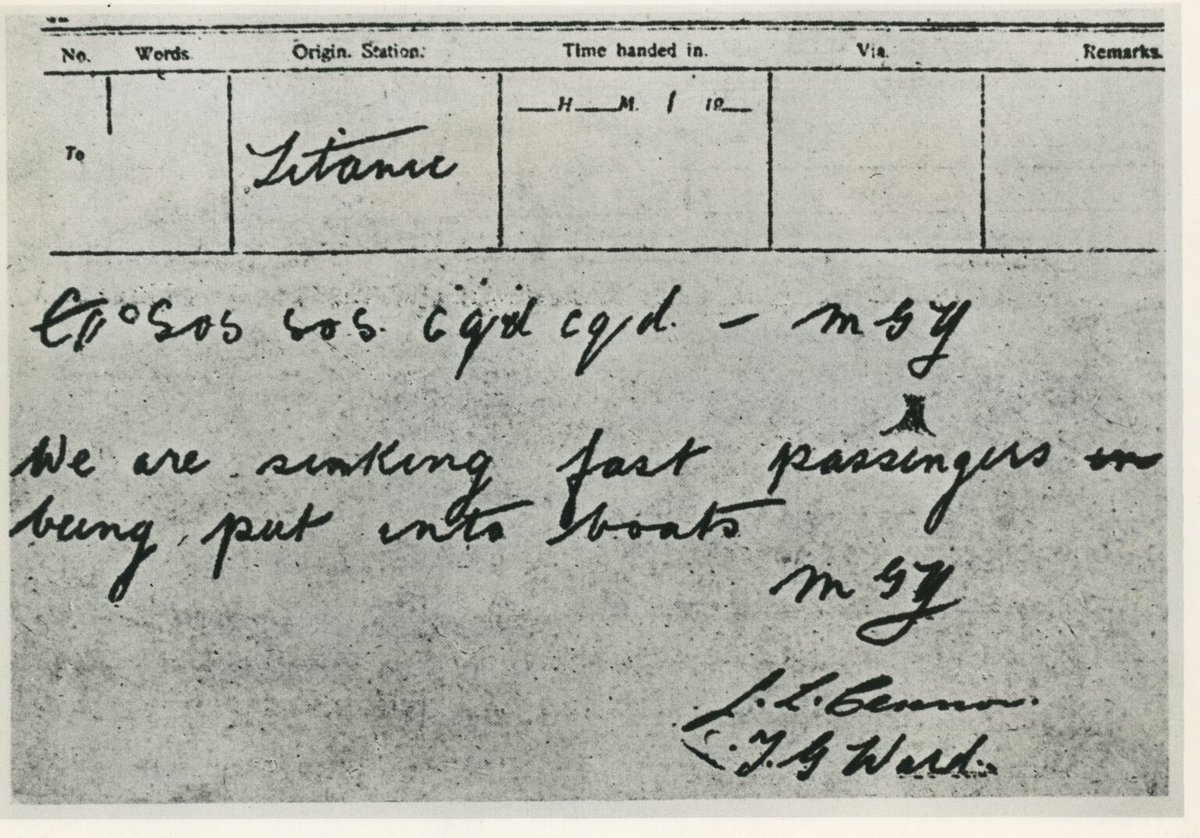 No. Words. Origin. Station. Time handed in. Via. Remarks.
H. M. 19
To
Titanic
SOS SOS. cqd cqd. - MGY
We are sinking fast passengers
being put into boats
MGY
T. G Ward.